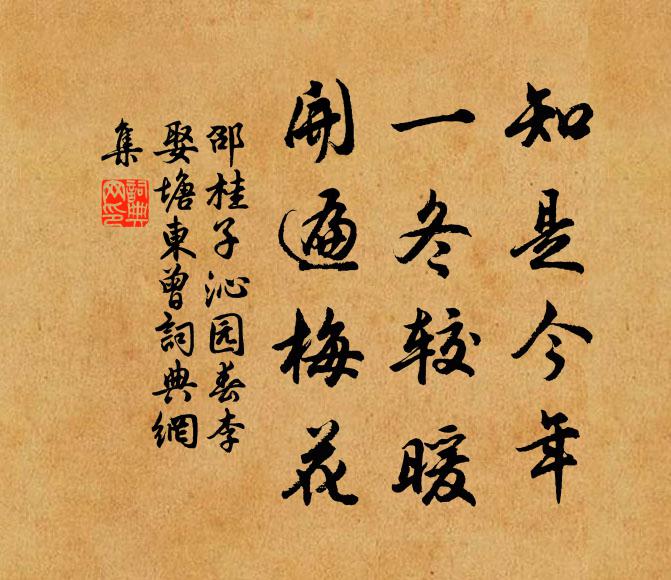 知是今年
一冬较暖
開遍梅花
邵桂子沁园春李
娶塘東曾詞典網
集
詞典网印